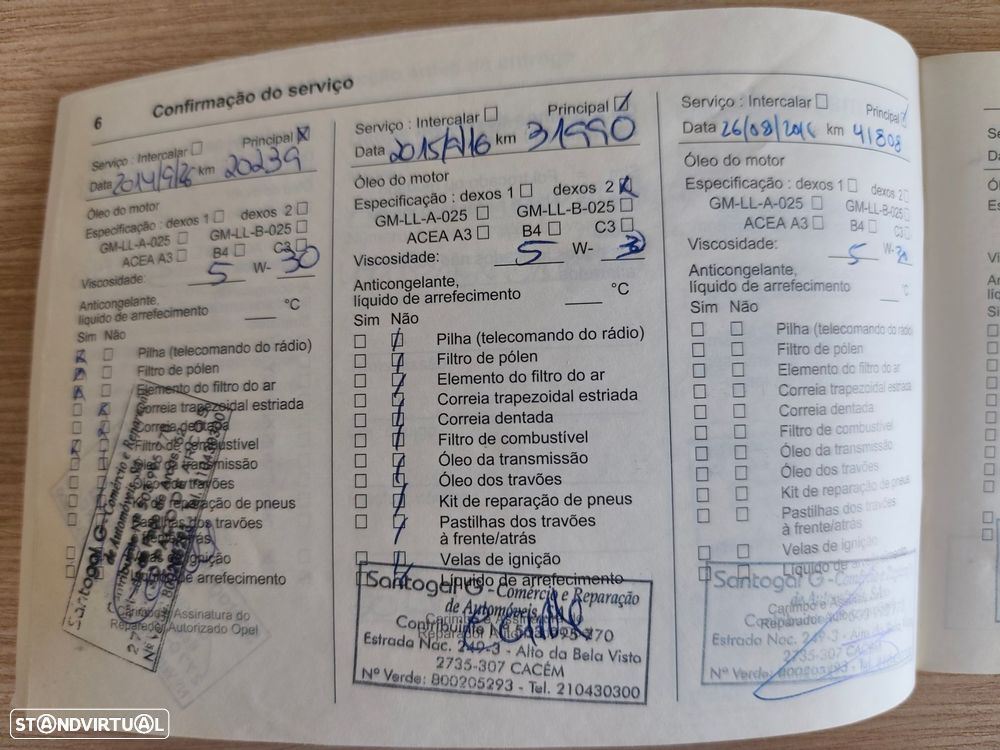 6 Confirmação do serviço
Serviço : Intercalar Principal
Data 2014/9/26 km 20239
Óleo do motor
Especificação : dexos 1 dexos 2
GM-LL-A-025 GM-LL-B-025
ACEA A3 B4 C3
Viscosidade: 5 W- 30
Anticongelante,
líquido de arrefecimento °C
Sim Não
Pilha (telecomando do rádio)
Filtro de pólen
Elemento do filtro do ar
Correia trapezoidal estriada
Correia dentada
Filtro de combustível
Óleo da transmissão
Óleo dos travões
Kit de reparação de pneus
Pastilhas dos travões
à frente/atrás
Velas de ignição
Líquido de arrefecimento
Carimbo e Assinatura do
Reparador Autorizado Opel
Santogal G - Comércio e Reparação
de Automóveis
Serviço : Intercalar Principal
Data 2015/9/16 km 31990
Óleo do motor
Especificação : dexos 1 dexos 2
GM-LL-A-025 GM-LL-B-025
ACEA A3 B4 C3
Viscosidade: 5 W- 30
Anticongelante,
líquido de arrefecimento °C
Sim Não
Pilha (telecomando do rádio)
Filtro de pólen
Elemento do filtro do ar
Correia trapezoidal estriada
Correia dentada
Filtro de combustível
Óleo da transmissão
Óleo dos travões
Kit de reparação de pneus
Pastilhas dos travões
à frente/atrás
Velas de ignição
Líquido de arrefecimento
Santogal G - Comércio e Reparação
de Automóveis
Carimbo e
Contribuinte
Reparador
Estrada Nac. 249-3 - Alto da Bela Vista
2735-307 CACÉM
Nº Verde: 800205293 - Tel. 210430300
Serviço : Intercalar Principal
Data 26/08/2016 km 41808
Óleo do motor
Especificação : dexos 1 dexos 2
GM-LL-A-025 GM-LL-B-025
ACEA A3 B4 C3
Viscosidade: 5 W- 30
Anticongelante,
líquido de arrefecimento °C
Sim Não
Pilha (telecomando do rádio)
Filtro de pólen
Elemento do filtro do ar
Correia trapezoidal estriada
Correia dentada
Filtro de combustível
Óleo da transmissão
Óleo dos travões
Kit de reparação de pneus
Pastilhas dos travões
à frente/atrás
Velas de ignição
Líquido de
Santogal G - Comércio e
Carimbo e Assinatura do
Reparador Autorizado
Estrada Nac. 249-3
2735-307 CACÉM
Nº Verde: 800205293
STANDVIRTUAL